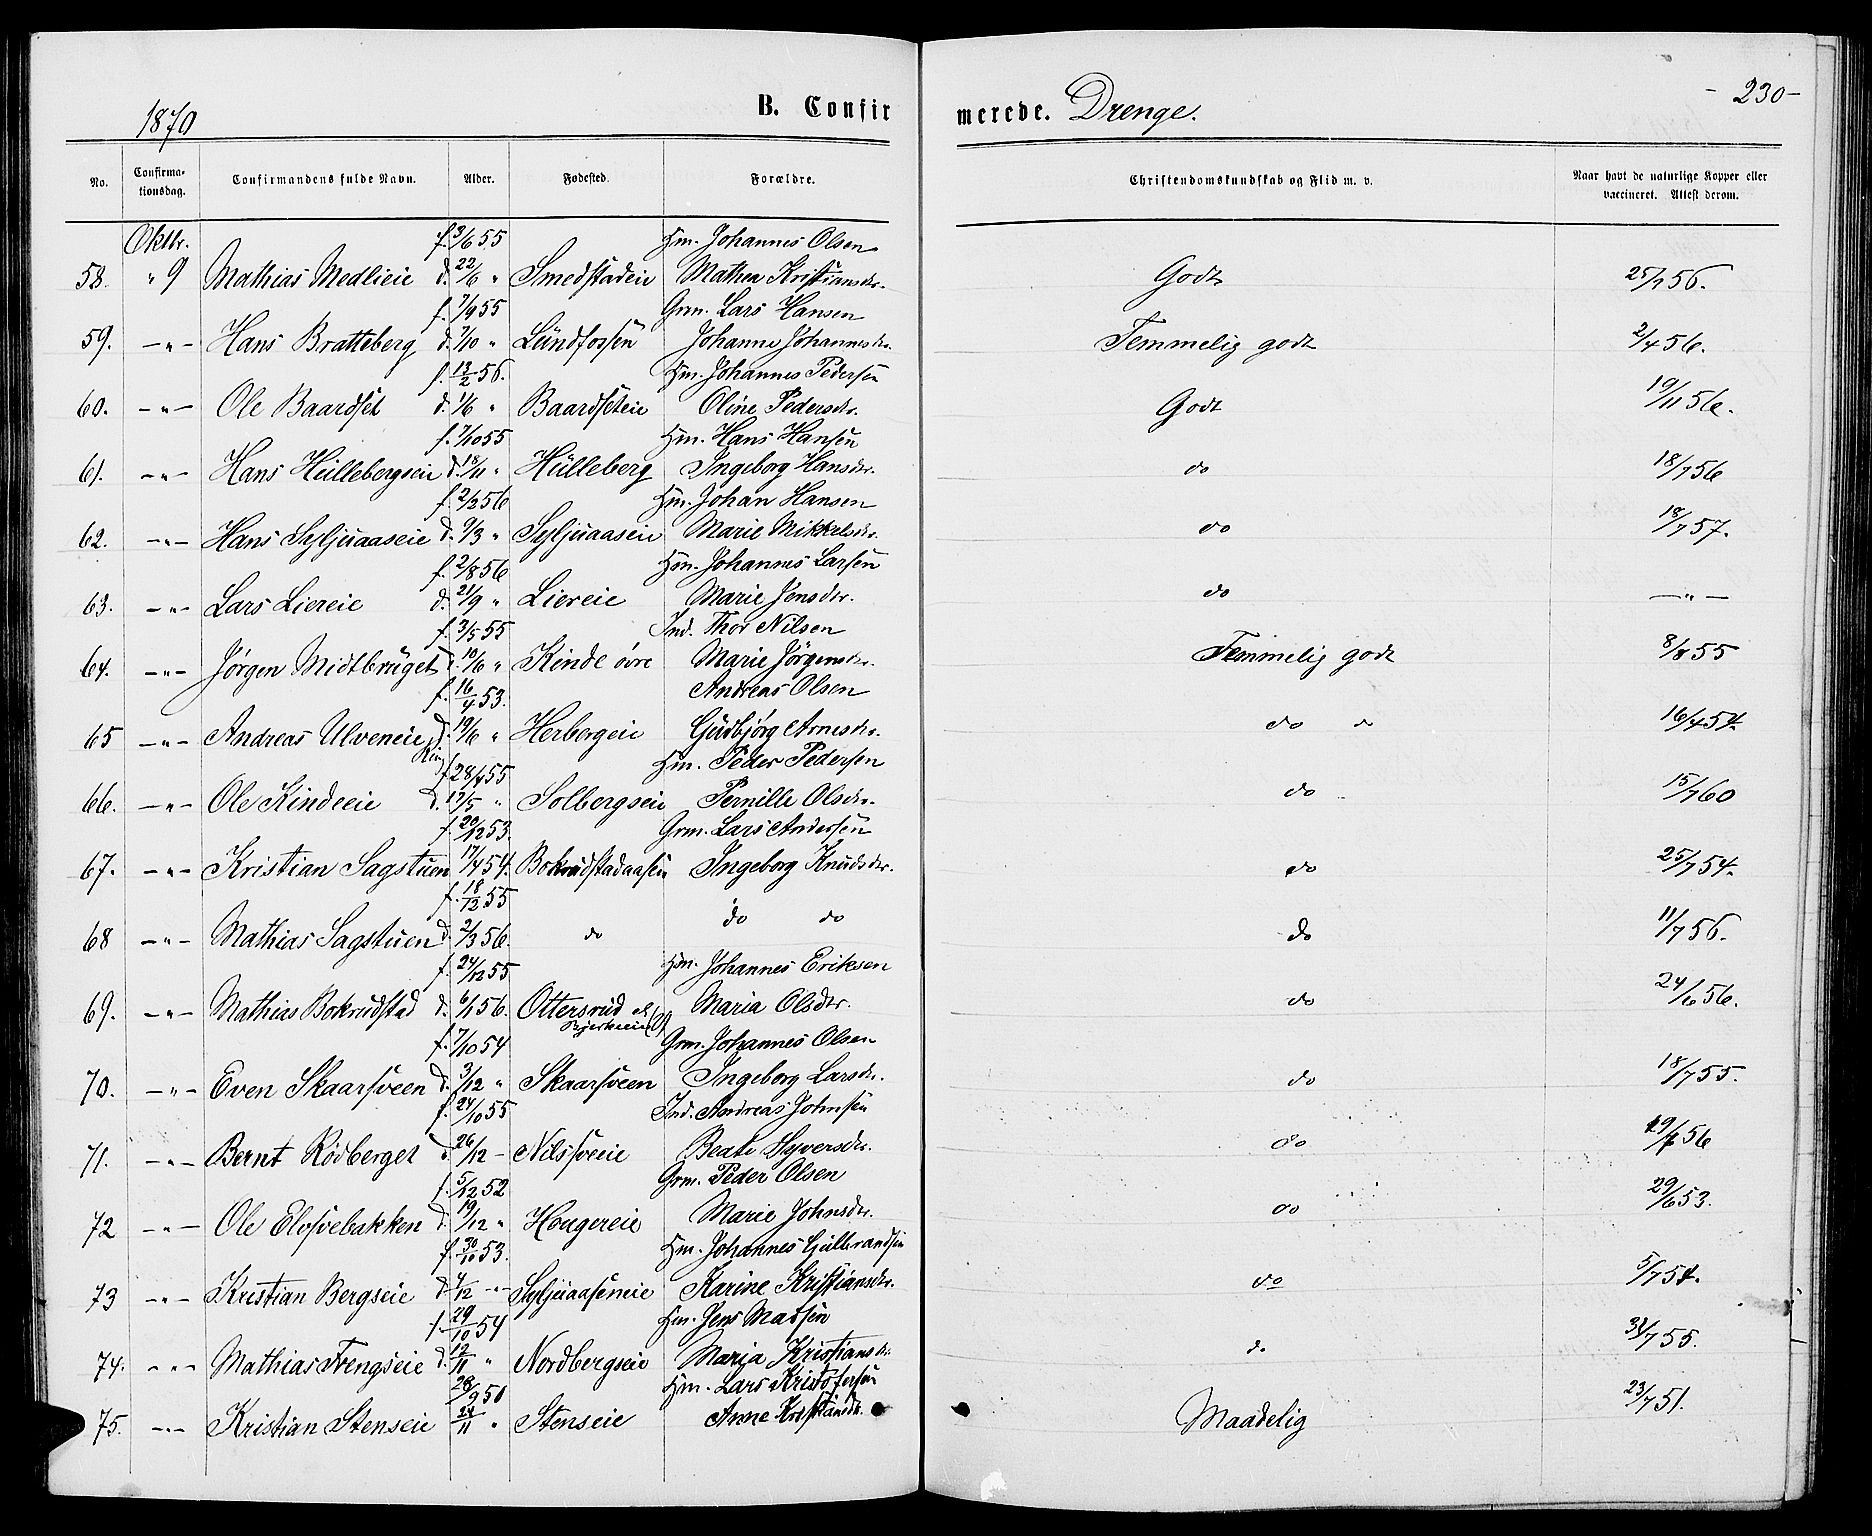 1870
B. Confirmerede. Drenge.
- 230 -
No.
Confirmationsdag.
Confirmandens fulde Navn.
Alder.
Fødested.
Forældre.
Christendomskundskab og Flid m. v.
Naar havt de naturlige Kopper eller vaccineret. Attest derom.
Oktbr. f. 3/6 55 Hm. Johannes Olsen
58. " 9 Mathias Medlieie d. 22/6 " Smedstadeie Mathea Kristiansdr. Godt 25/7 56.
f. 7/9 55 Grm. Lars Hansen
59. -"- Hans Bratteberg d. 7/10 " Lundfossen Johanne Johannesdr. Temmelig godt 2/4 56.
f. 13/2 56. Hm. Johannes Pedersen
60. -"- Ole Baardset d. 1/6 " Baardseteie Oline Pedersdr. Godt 19/11 56.
f. 7/10 55 Hm. Hans Hansen
61. -"- Hans Hullebergseie d. 18/11 " Hulleberg Ingeborg Hansdr. do 18/7 56
f. 2/2 56 Hm. Johan Hansen
62. -"- Hans Syljuaaseie d. 9/3 " Syljuaaseie Marie Mikkelsdr. do 18/7 57.
f. 2/8 56 Hm. Johannes Larsen
63. -"- Lars Liereie d. 21/9 " Liereie Marie Jensdr. do -"-
f. 3/5 55 Ind. Thor Nilsen
64. -"- Jørgen Midtbruget d. 10/6 " Kinde øvre Marie Jørgensdr. Temmelig godt 8/8 55
f. 16/4 53. Andreas Olsen
65 -"- Andreas Ulveneie d. 19/6 " Herbergeie Gudbjørg Arnesdr. do " 16/4 54.
f. 28/4 55 Hm. Peder Pedersen
66. -"- Ole Kindeeie d. 17/5 " Solbergseie Pernille Olsdr. do 15/7 60
f. 20/12 53. Grm. Lars Andersen
67. -"- Kristian Sagstuen 17/4 54. Bokrudstadaasen Ingeborg Knudsdr. do 25/7 54.
f. 18/12 55
68 -"- Mathias Sagstuen d. 2/3 56. do do do do 11/7 56.
f. 24/12 55 Hm. Johannes Eriksen
69. -"- Mathias Bokrudstad d. 6/1 56. Ottersrud Maria Olsdr. do 24/6 56.
f. 7/10 54 Grm. Johannes Olsen
70. -"- Even Skaarsveen d. 3/12 " Skaarsveen Ingeborg Larsdr. do 18/7 55.
f. 24/10 55 Ind. Andreas Johnsen
71. -"- Bernt Rødberget d. 26/12 - Nilssveeie Beate Syversdr. do 19/7 56
f. 5/12 52 Grm. Peder Olsen
72 -"- Ole Elvsvebakken d. 19/12 " Haugereie Marie Johnsdr. do 29/6 53.
f. 30/10 53. Hm. Johannes Gulbrandsen
73 -"- Kristian Bergseie d. 4/12 -"- Syljuaaseneie Karine Kristiansdr. do 5/7 54.
f. 29/10 54 Hm. Jens Matsen
74. -"- Mathias Frengseie d. 12/11 " Nordbergseie Maria Kristiansdr. do 31/7 55.
28/9 50 Hm. Lars Kristofersen
75. -"- Kristian Stenseie 24/11 " Stenseie Anne Kristiansdr. Maadelig 23/7 51.